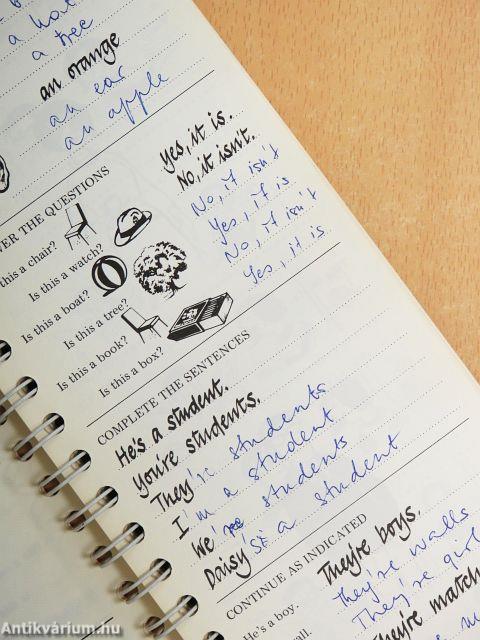 a hat
a tree
an orange
an ear
an apple
VER THE QUESTIONS
this a chair?
Yes, it is.
Is this a watch?
No, it isn't.
Is this a boat?
No, it isn't
Is this a tree?
Yes, it is
Is this a book?
No, it isn't
Is this a box?
Yes, it is
COMPLETE THE SENTENCES
He's a student.
You're students.
They're students
I'm a student
We're students
Daisy's a student
CONTINUE AS INDICATED
He's a boy.
They're boys.
wall.
They're walls
They're girl
Antikvárium.hu